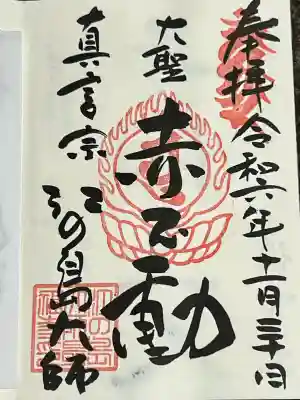 奉拝 令和六年十一月三十日
大聖
赤不動
真言宗 江の島大師